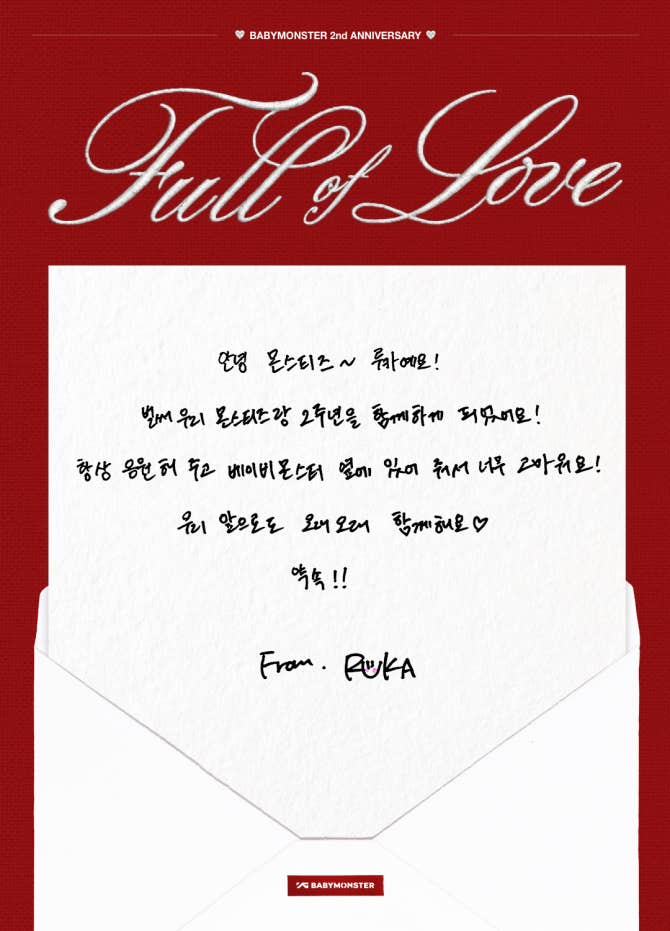 BABYMONSTER 2nd ANNIVERSARY
Full of Love
안녕 몬스티즈~ 루카예요!
벌써 우리 몬스티즈랑 2주년을 함께하게 되었어요!
항상 응원해 주고 베이비몬스터 옆에 있어 줘서 너무 고마워요!
우리 앞으로도 오래오래 함께해요♡
약속!!
From. RUKA
YG BABYMONSTER